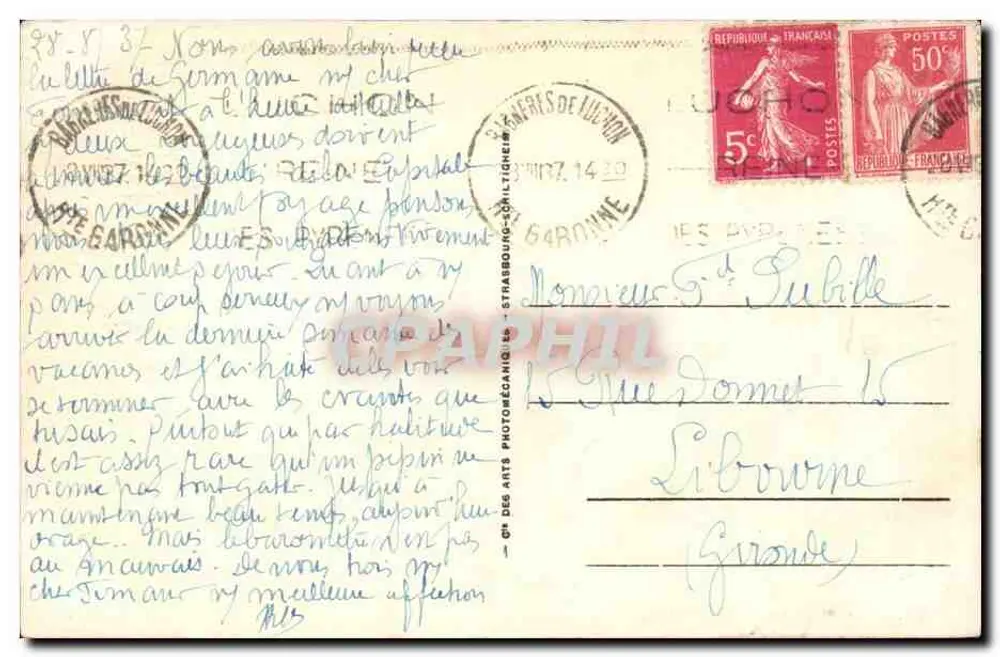 28-8 37 Nous avons bien reçu
la lettre de Germaine mon cher
à l'heure
deux voyageurs doivent
admirer les beautés de la Capitale
après voyage pensons
nous leur souhaitons vivement
un excellent séjour. Quant à
pars, à coup voyons
arriver la dernière semaine de
vacances et j'ai hâte de les voir
se terminer avec les craintes que
tu sais. Surtout que par habitude
il est assez rare qu'un pépin ne
vienne pas tout gâter. Jusqu'à
maintenant beau temps, aujourd'hui
orage.. Mais le baromètre n'est pas
au mauvais. De nous trois
cher meilleure affection
BAGNERES DE LUCHON
Hte GARONNE
BAGNERES DE LUCHON
14 30
Hte GARONNE
LUCHON
REINE
DES PYRENEES
REPUBLIQUE FRANÇAISE
5c
POSTES
POSTES
50c
REPUBLIQUE FRANÇAISE
— Cie DES ARTS PHOTOMÉCANIQUES - STRASBOURG-SCHILTIGHEIM —
Monsieur Fd Subille
15 Rue Donnet 15
Libourne
(Gironde)
CPAPHIL